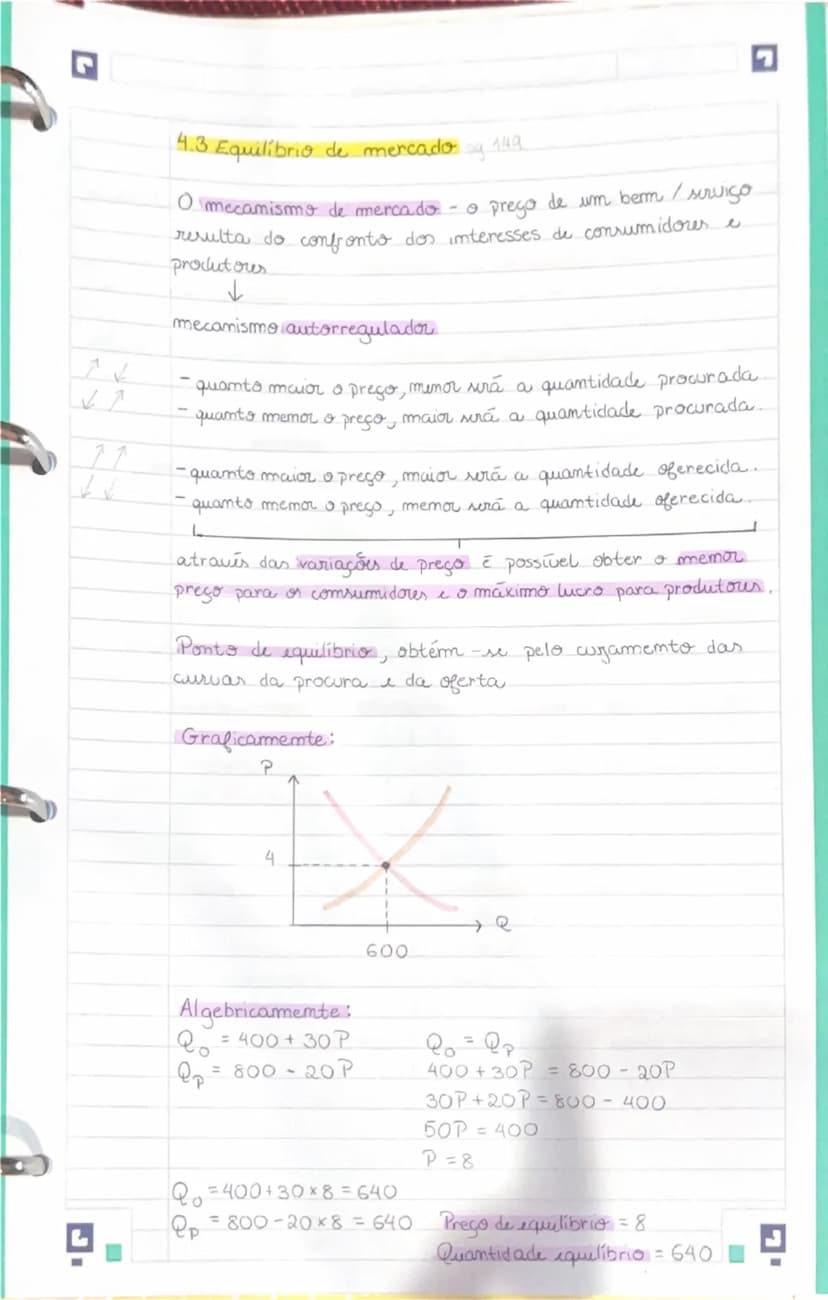 4.3 Equilíbrio de mercado pg 149
O mecanismo de mercado - o preço de um bem / serviço
resulta do confronto dos interesses de consumidores e
produtores
↓
mecanismo autorregulador
↑ ↓ - quanto maior o preço, menor será a quantidade procurada
↓ ↑ - quanto menor o preço, maior será a quantidade procurada.
↑ ↑ - quanto maior o preço, maior será a quantidade oferecida.
↓ ↓ - quanto menor o preço, menor será a quantidade oferecida.
através das variações de preço é possível obter o menor
preço para os consumidores e o máximo lucro para produtores.
Ponto de equilíbrio, obtém-se pelo cruzamento das
curvas da procura e da oferta
Graficamente:
P
4
Q
600
Algebricamente:
Qo = 400 + 30P
Qp = 800 - 20P
Qo = Qp
400 + 30P = 800 - 20P
30P + 20P = 800 - 400
50P = 400
P = 8
Qo = 400 + 30 × 8 = 640
Qp = 800 - 20 × 8 = 640
Preço de equilíbrio = 8
Quantidade equilíbrio = 640